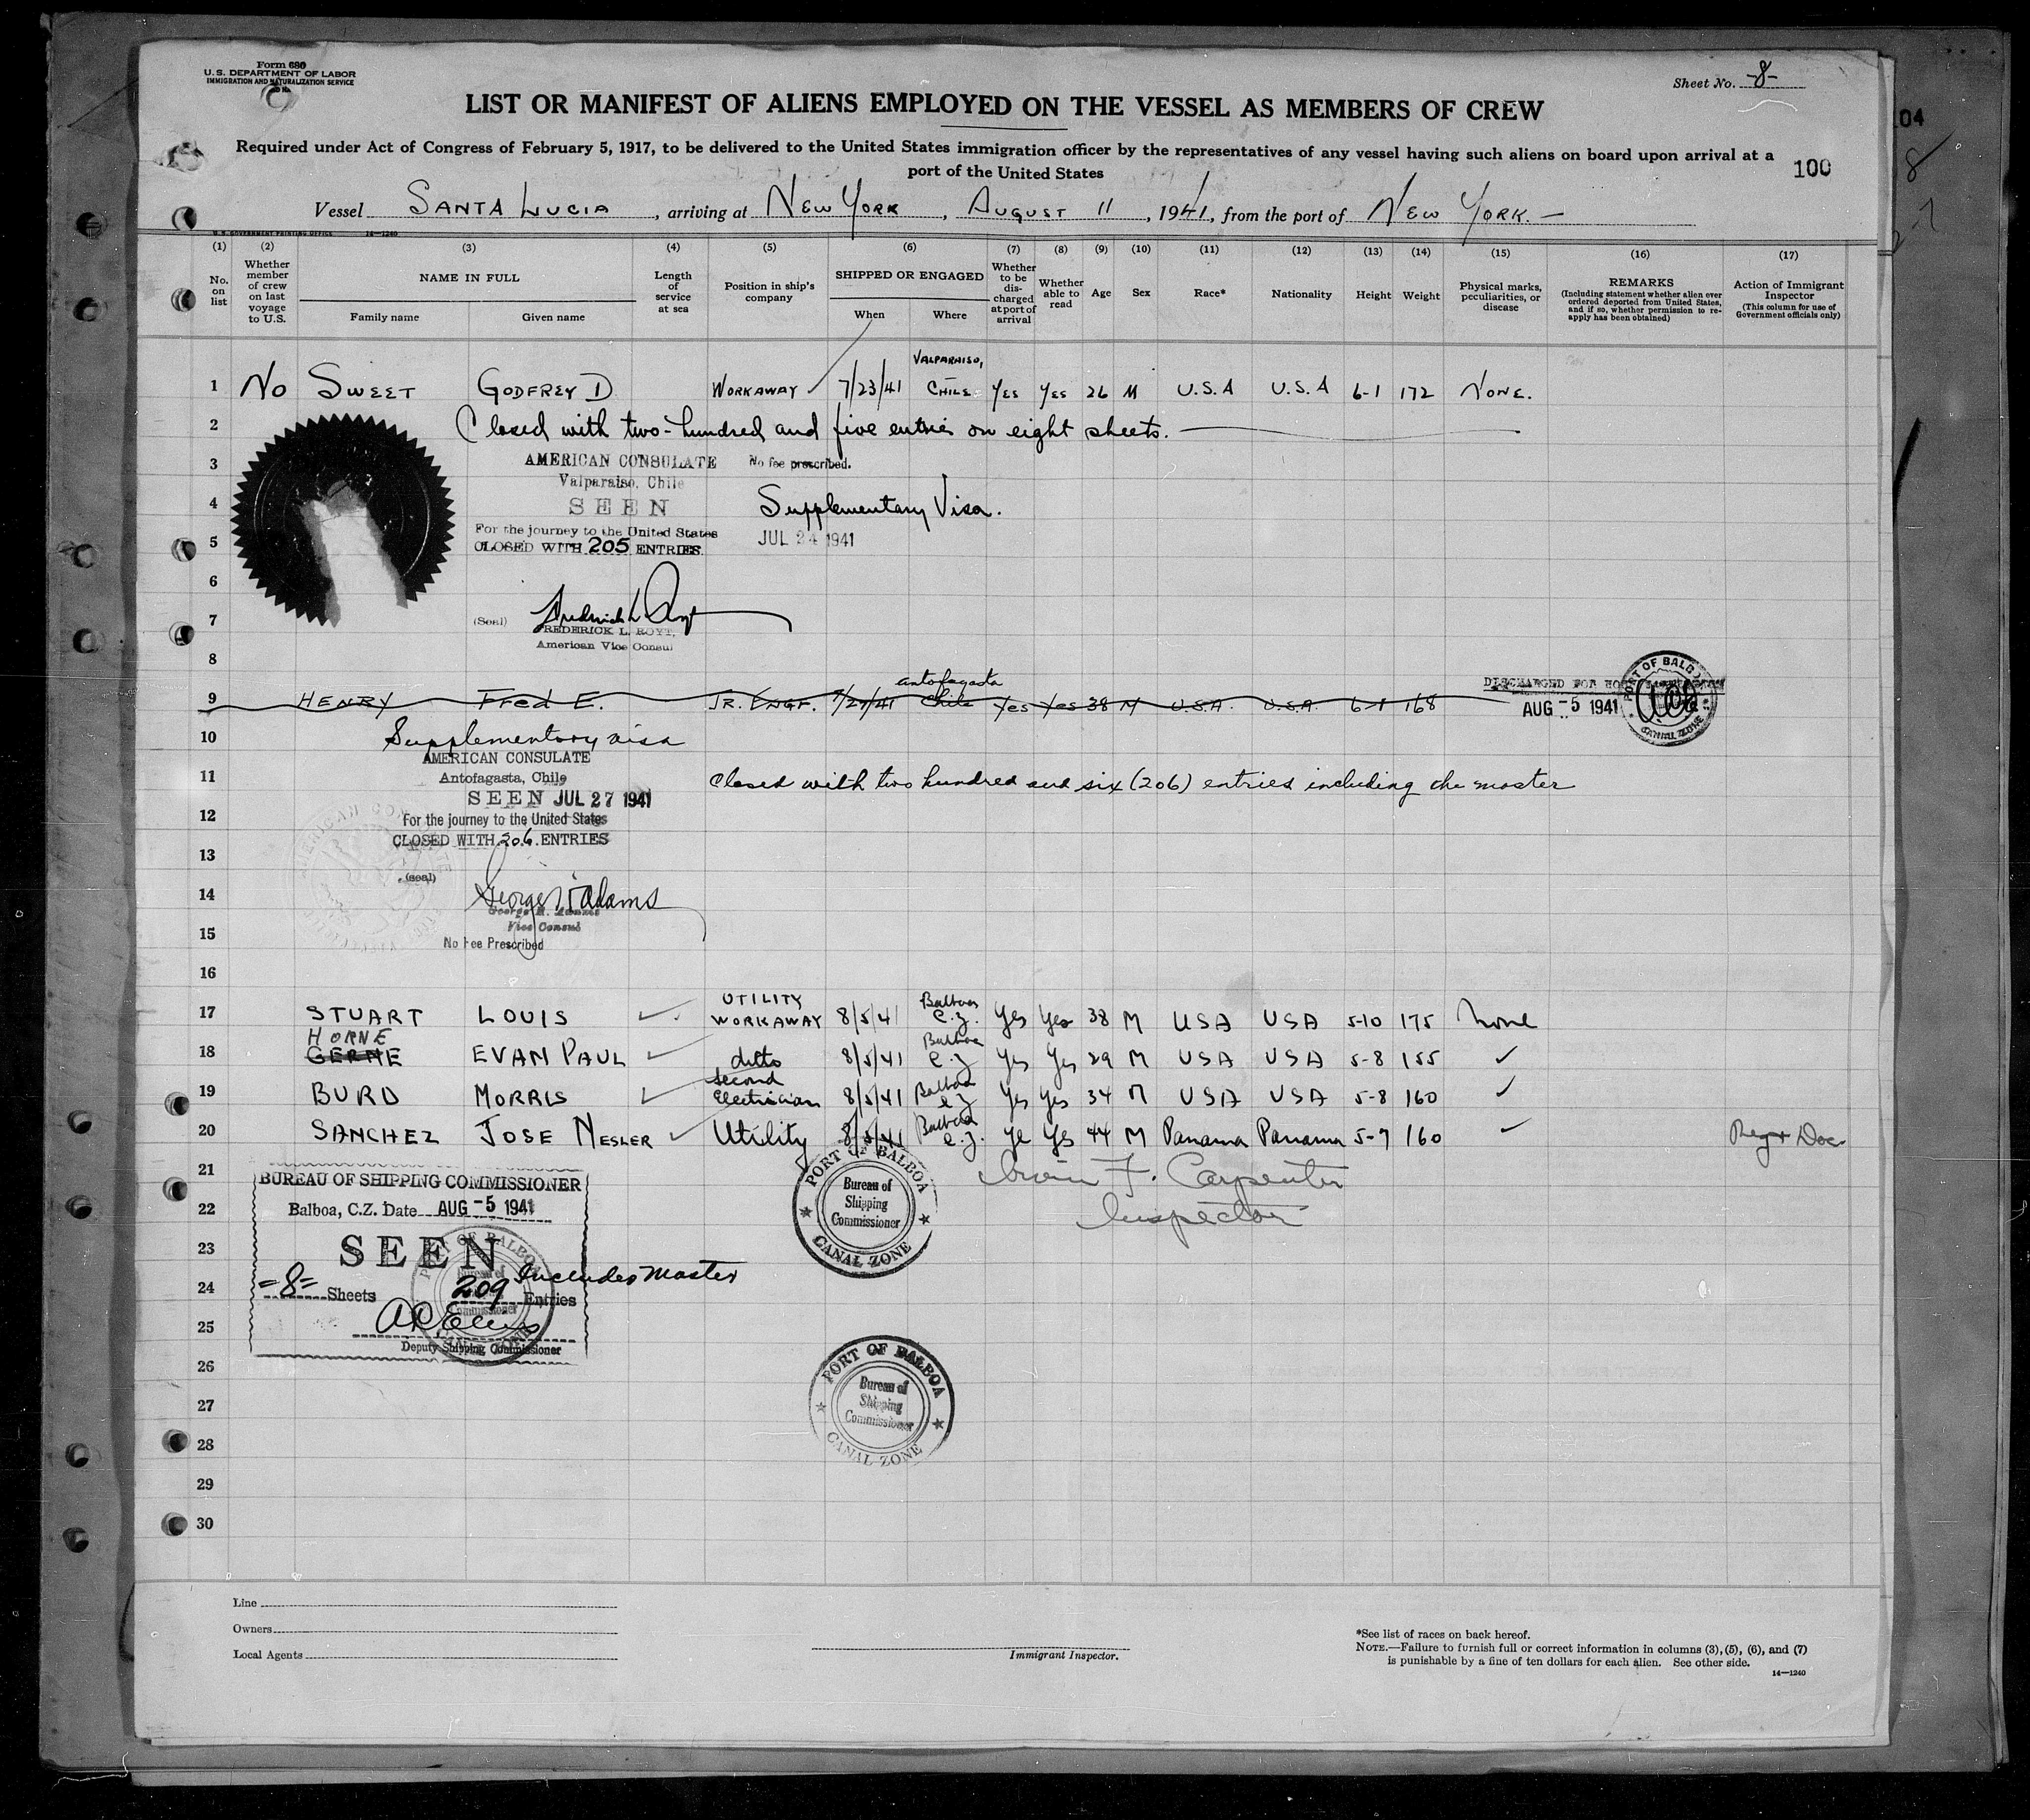 Form 680
U.S. DEPARTMENT OF LABOR
IMMIGRATION AND NATURALIZATION SERVICE
Sheet No. -8-
LIST OR MANIFEST OF ALIENS EMPLOYED ON THE VESSEL AS MEMBERS OF CREW
Required under Act of Congress of February 5, 1917, to be delivered to the United States immigration officer by the representatives of any vessel having such aliens on board upon arrival at a
port of the United States
100
104
8
Vessel SANTA LUCIA, arriving at NEW YORK, AUGUST 11, 1941, from the port of NEW YORK.—
U.S. GOVERNMENT PRINTING OFFICE 14—1240
(1) (2) (3) (4) (5) (6) (7) (8) (9) (10) (11) (12) (13) (14) (15) (16) (17)
No. on list
Whether member of crew on last voyage to U.S.
NAME IN FULL
Family name Given name
Length of service at sea
Position in ship's company
SHIPPED OR ENGAGED
When Where
Whether to be discharged at port of arrival
Whether able to read
Age
Sex
Race*
Nationality
Height
Weight
Physical marks, peculiarities, or disease
REMARKS
(Including statement whether alien ever ordered deported from United States, and if so, whether permission to re-apply has been obtained)
Action of Immigrant Inspector
(This column for use of Government officials only)
VALPARAISO,
1 NO SWEET GODFREY D WORKAWAY 7/23/41 CHILE YES YES 26 M U.S.A U.S.A 6-1 172 NONE.
2 Closed with two-hundred and five entries on eight sheets.
3 AMERICAN CONSULATE No fee prescribed.
Valparaiso, Chile
4 SEEN Supplementary Visa.
For the journey to the United States
5 CLOSED WITH 205 ENTRIES. JUL 24 1941
6
7 (Seal)
FREDERICK L. ROYT,
American Vice Consul
8
Antofagasta
DISCHARGED FOR
9 HENRY Fred E. JR. ENGR. 7/27/41 Chile Yes Yes 38 M U.S.A. U.S.A. 6-1 168
AUG -5 1941
PORT OF BALBOA
CANAL ZONE
10 Supplementary visa
AMERICAN CONSULATE
11 Antofagasta, Chile Closed with two hundred and six (206) entries including the master
SEEN JUL 27 1941
12 For the journey to the United States
CLOSED WITH 206 ENTRIES
13
(seal)
14 George F Adams
Vice Consul
15
No Fee Prescribed
16
UTILITY Balboa
17 STUART LOUIS WORKAWAY 8/5/41 C.Z. Yes Yes 38 M USA USA 5-10 175 None
HORNE Balboa
18 GERNE EVAN PAUL ditto 8/5/41 C.Z Yes Yes 29 M USA USA 5-8 155
second Balboa
19 BURD MORRIS Electrician 8/5/41 C.Z Yes Yes 34 M USA USA 5-8 160
Balboa
20 SANCHEZ JOSE NESLER Utility 8/5/41 C.Z. Ye Yes 44 M Panama Panama 5-7 160
21 F. Carpenter
BUREAU OF SHIPPING COMMISSIONER
22 Balboa, C.Z. Date AUG -5 1941 Inspector
PORT OF BALBOA
Bureau of
Shipping
Commissioner
CANAL ZONE
23 SEEN
24 =8= Sheets 209 Entries Includes Master
PORT OF BALBOA
Bureau of
Commissioner
25
Deputy Shipping Commissioner
26
PORT OF BALBOA
Bureau of
Shipping
Commissioner
CANAL ZONE
27
28
29
30
Line
Owners
Local Agents
Immigrant Inspector.
*See list of races on back hereof.
NOTE.—Failure to furnish full or correct information in columns (3), (5), (6), and (7)
is punishable by a fine of ten dollars for each alien. See other side.
14—1240